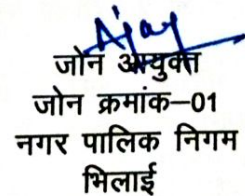 Ajay
जोन आयुक्त
जोन क्रमांक–01
नगर पालिक निगम
भिलाई